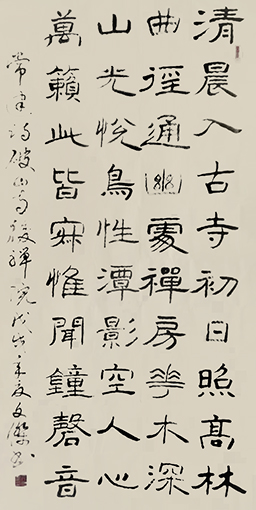 清晨入古寺初日照高林
曲徑通幽處禪房華木深
山光悅鳥性潭影空人心
萬籟此皆寂惟聞鐘磬音
常建詩破山寺後禪院戊戌年夏文傑書